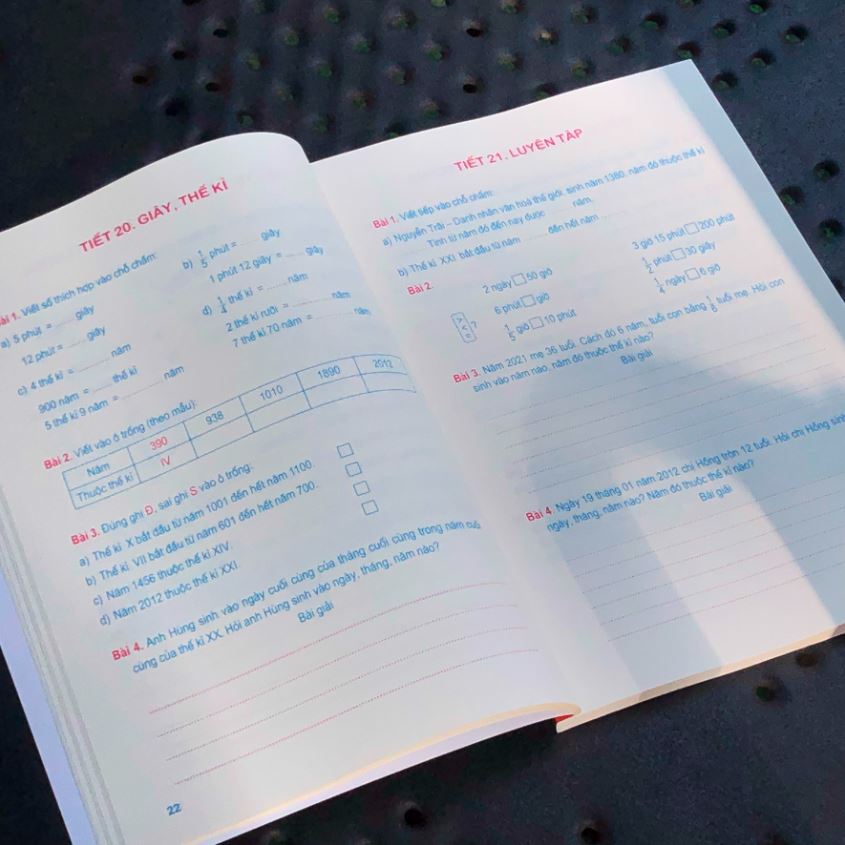 TIẾT 20. GIÂY, THẾ KỈ
Bài 1. Viết số thích hợp vào chỗ chấm:
a) 5 phút = ........ giây
12 phút = ........ giây
b) 1/5 phút = ........ giây
1 phút 12 giây = ........ giây
c) 4 thế kỉ = ........ năm
900 năm = ........ thế kỉ
5 thế kỉ 9 năm = ........ năm
d) 1/4 thế kỉ = ........ năm
2 thế kỉ rưỡi = ........ năm
7 thế kỉ 70 năm = ........ năm
Bài 2. Viết vào ô trống (theo mẫu):
Năm 390 938 1010 1890 2012
Thuộc thế kỉ IV
Bài 3. Đúng ghi Đ, sai ghi S vào ô trống:
a) Thế kỉ X bắt đầu từ năm 1001 đến hết năm 1100.
b) Thế kỉ VII bắt đầu từ năm 601 đến hết năm 700.
c) Năm 1456 thuộc thế kỉ XIV.
d) Năm 2012 thuộc thế kỉ XXI.
Bài 4. Anh Hùng sinh vào ngày cuối cùng của tháng cuối cùng trong năm cuối
cùng của thế kỉ XX. Hỏi anh Hùng sinh vào ngày, tháng, năm nào?
Bài giải
22
TIẾT 21. LUYỆN TẬP
Bài 1. Viết tiếp vào chỗ chấm:
a) Nguyễn Trãi – Danh nhân văn hoá thế giới, sinh năm 1380, năm đó thuộc thế kỉ
........ Tính từ năm đó đến nay được ........ năm.
b) Thế kỉ XXI bắt đầu từ năm ........ đến hết năm ........
Bài 2.
> < = ?
2 ngày □ 50 giờ
3 giờ 15 phút □ 200 phút
6 phút □ giờ
1/2 phút □ 30 giây
1/5 giờ □ 10 phút
1/4 ngày □ 6 giờ
Bài 3. Năm 2021 mẹ 36 tuổi. Cách đó 6 năm, tuổi con bằng tuổi mẹ. Hỏi con
sinh vào năm nào, năm đó thuộc thế kỉ nào?
Bài giải
Bài 4. Ngày 19 tháng 01 năm 2012 chị Hồng tròn 12 tuổi. Hỏi chị Hồng sinh
ngày, tháng, năm nào? Năm đó thuộc thế kỉ nào?
Bài giải